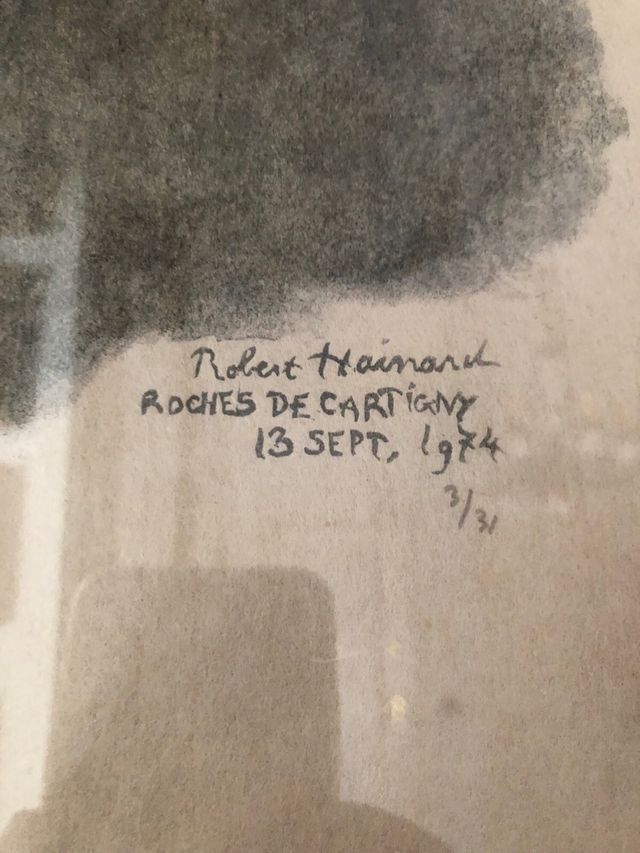 Robert Hainard
ROCHES DE CARTIGNY
13 SEPT, 1974
3/31